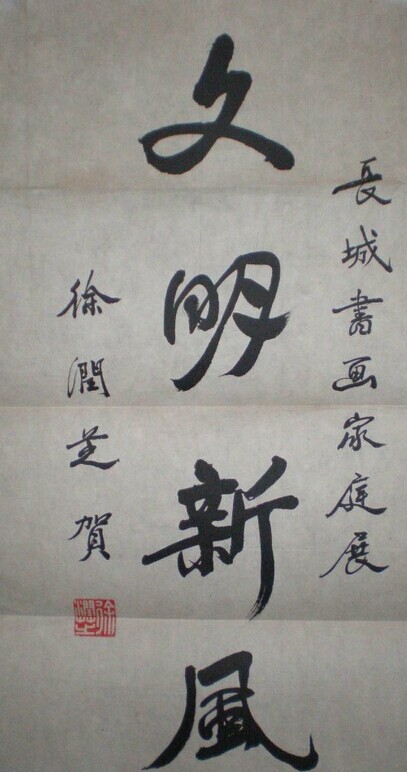 長城書画家庭展
文明新風
徐潤芝賀